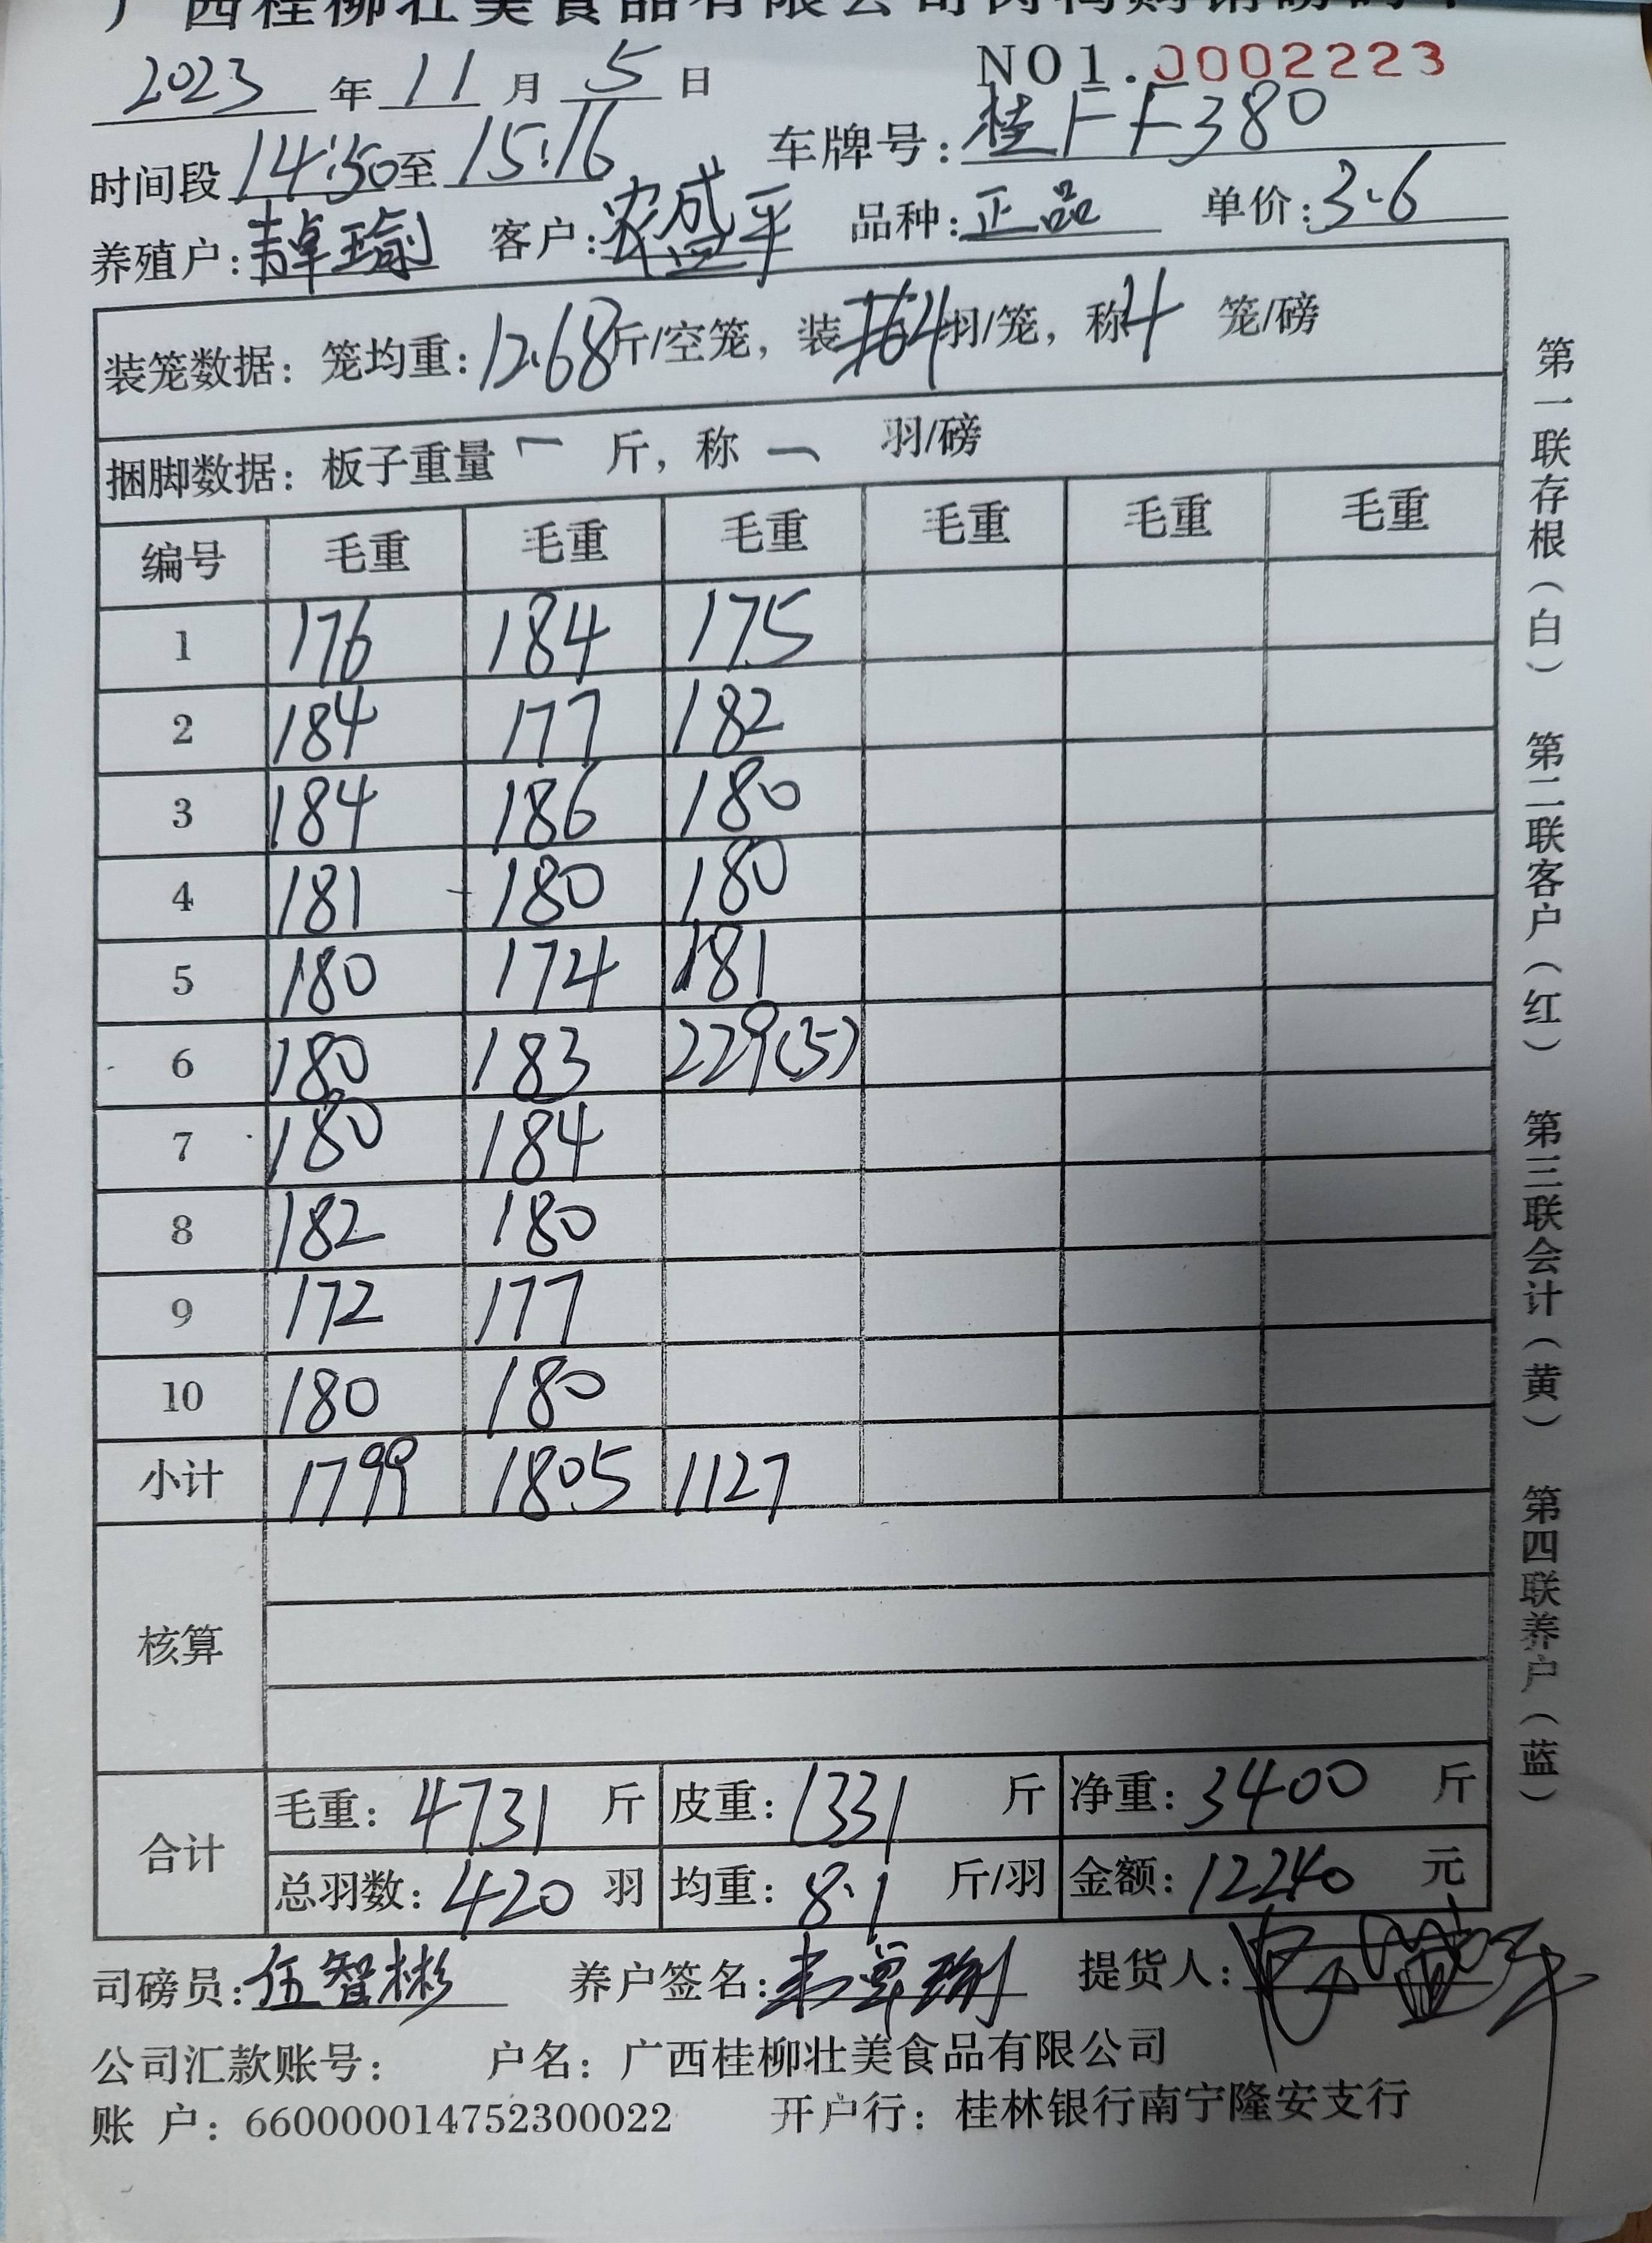 广西桂柳壮美食品有限公司肉鸭购销磅码单
2023 年 11 月 5 日 NO1.0002223
时间段 14:50 至 15:16 车牌号: 桂FF380
养殖户: 韦卓瑜 客户: 农盛平 品种: 正品 单价: 3.6
装笼数据: 笼均重: 12.68 斤/空笼, 装 4 羽/笼, 称 4 笼/磅
捆脚数据: 板子重量 一 斤, 称 一 羽/磅
编号 毛重 毛重 毛重 毛重 毛重 毛重
1 176 184 175
2 184 177 182
3 184 186 180
4 181 180 180
5 180 174 181
6 180 183 229(5)
7 180 184
8 182 180
9 172 177
10 180 180
小计 1799 1805 1127
核算
合计 毛重: 4731 斤 皮重: 1331 斤 净重: 3400 斤
总羽数: 420 羽 均重: 8.1 斤/羽 金额: 12240 元
司磅员: 伍智彬 养户签名: 韦卓瑜 提货人:
公司汇款账号: 户名: 广西桂柳壮美食品有限公司
账 户: 660000014752300022 开户行: 桂林银行南宁隆安支行
第一联存根(白) 第二联客户(红) 第三联会计(黄) 第四联养户(蓝)